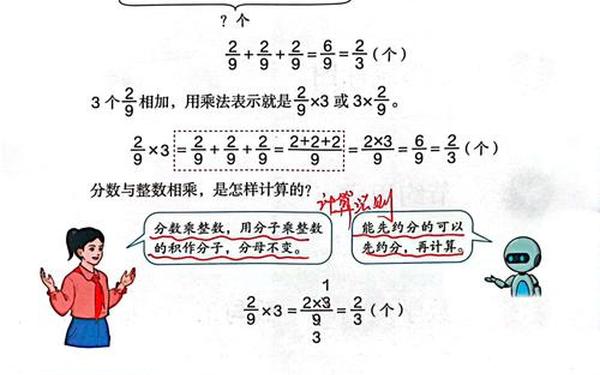 ？个
2/9+2/9+2/9=6/9=2/3（个）
3个2/9相加，用乘法表示就是2/9×3或3×2/9。
2/9×3=2/9+2/9+2/9=2+2+2/9=2×3/9=6/9=2/3（个）
分数与整数相乘，是怎样计算的？
计算法则
分数乘整数，用分子乘整数
的积作分子，分母不变。
能先约分的可以
先约分，再计算。
1
2/9×3=2×3/9=2/3（个）
3